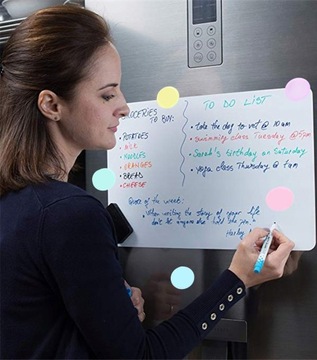 GROCERIES
TO BUY:
POTATOES
MILK
NOODLES
ORANGES
BREAD
CHEESE
TO DO LIST
• take the dog to vet @ 10 am
• swimming class Tuesday @ 5pm
• Sarah's birthday on Saturday
• yoga class Thursday @ 7am
Quote of the week:
"When writing the story of your life
don't let anyone else hold the pen."
Harley